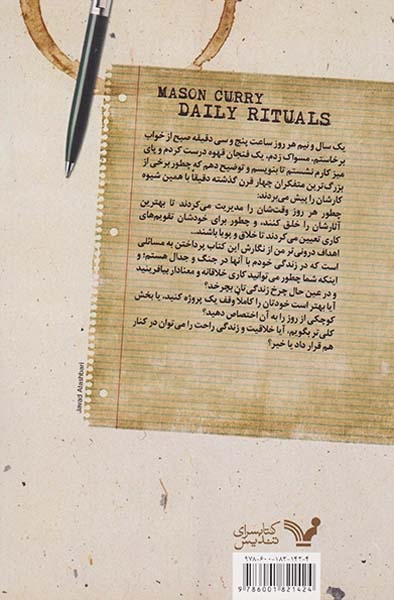 MASON CURRY
DAILY RITUALS
یک سال و نیم هر روز ساعت پنج و سی دقیقه صبح از خواب
برخاستم، مسواک زدم، یک فنجان قهوه درست کردم و پای
میز کارم نشستم تا بنویسم و توضیح دهم که چطور برخی از
بزرگ‌ترین متفکران چهار قرن گذشته دقیقاً با همین شیوه
کارشان را پیش می‌بردند:
چطور هر روز وقت‌شان را مدیریت می‌کردند تا بهترین
آثارشان را خلق کنند، و چطور برای خودشان تقویم‌های
کاری تعیین می‌کردند تا خلاق و پویا باشند...
اهداف درونی‌تر من از نگارش این کتاب پرداختن به مسائلی
است که در زندگی خودم با آنها در جنگ و جدال هستم؛ و
اینکه شما چطور می‌توانید کاری خلاقانه و معنادار بیافرینید
و در عین حال چرخ زندگی‌تان بچرخد؟
آیا بهتر است خودتان را کاملاً وقف یک پروژه کنید، یا بخش
کوچکی از روز را به آن اختصاص دهید؟
کلی‌تر بگویم، آیا خلاقیت و زندگی راحت را می‌توان در کنار
هم قرار داد یا خیر؟
Javad Atashbari
کتابسرای
تندیس
۹۷۸-۶۰۰-۱۸۲-۱۴۲-۴
9786001821424